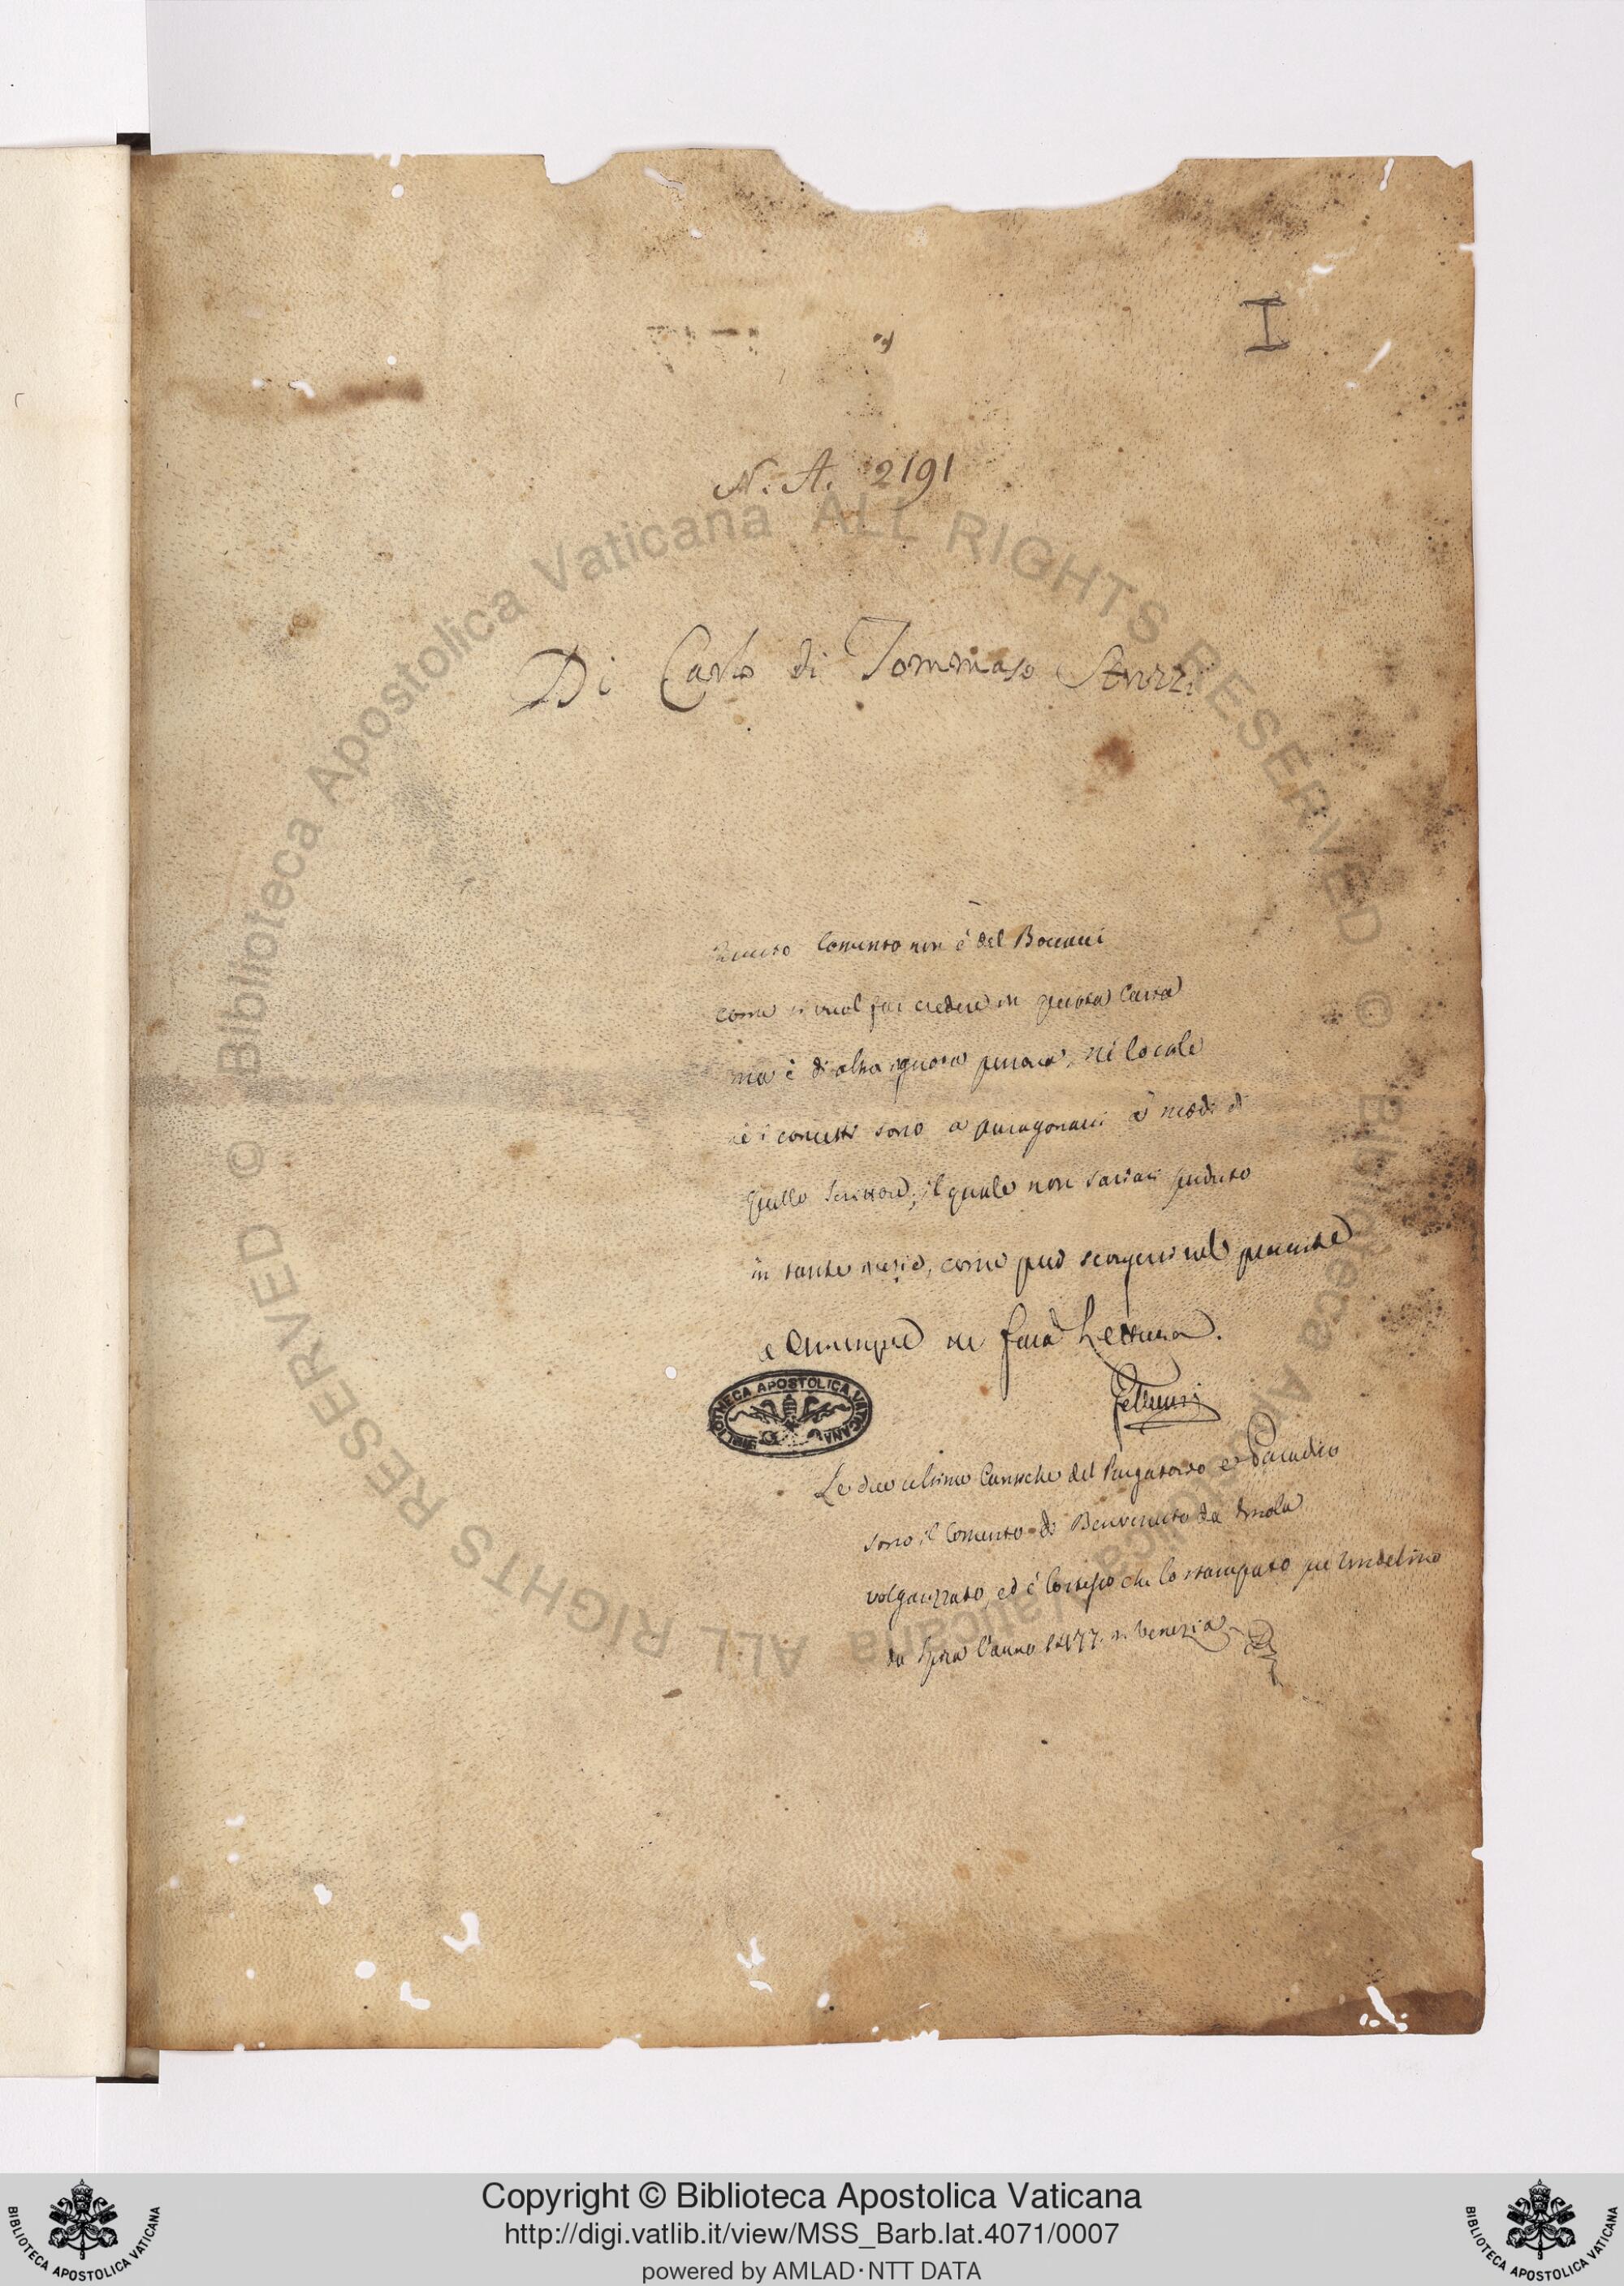 I
N. A. 2191
Di Carlo di Tommaso Strozzi
Questo Comento non è del Boccacci
come si vuol far credere in questa Carta
ma è di altra ignota penna, nè lo cale
nè i concetti sono a paragonarsi a' modi di
quello Scrittore, il quale non sariasi perduto
in tante inezie, come può scorgersi nel
a Chiunque ne farà Lettura.
BIBLIOTHECA APOSTOLICA VATICANA
Le due ultime Cantiche del Purgatorio e Paradiso
sono il Comento di Benvenuto da Imola
volgarizzato, ed è lo stesso che lo stampato per Vindelino
da Spira l'anno 1477. in Venezia
© Biblioteca Apostolica Vaticana ALL RIGHTS RESERVED
© Biblioteca Apostolica Vaticana ALL RIGHTS RESERVED
Copyright © Biblioteca Apostolica Vaticana
http://digi.vatlib.it/view/MSS_Barb.lat.4071/0007
powered by AMLAD·NTT DATA
BIBLIOTECA APOSTOLICA VATICANA
BIBLIOTECA APOSTOLICA VATICANA